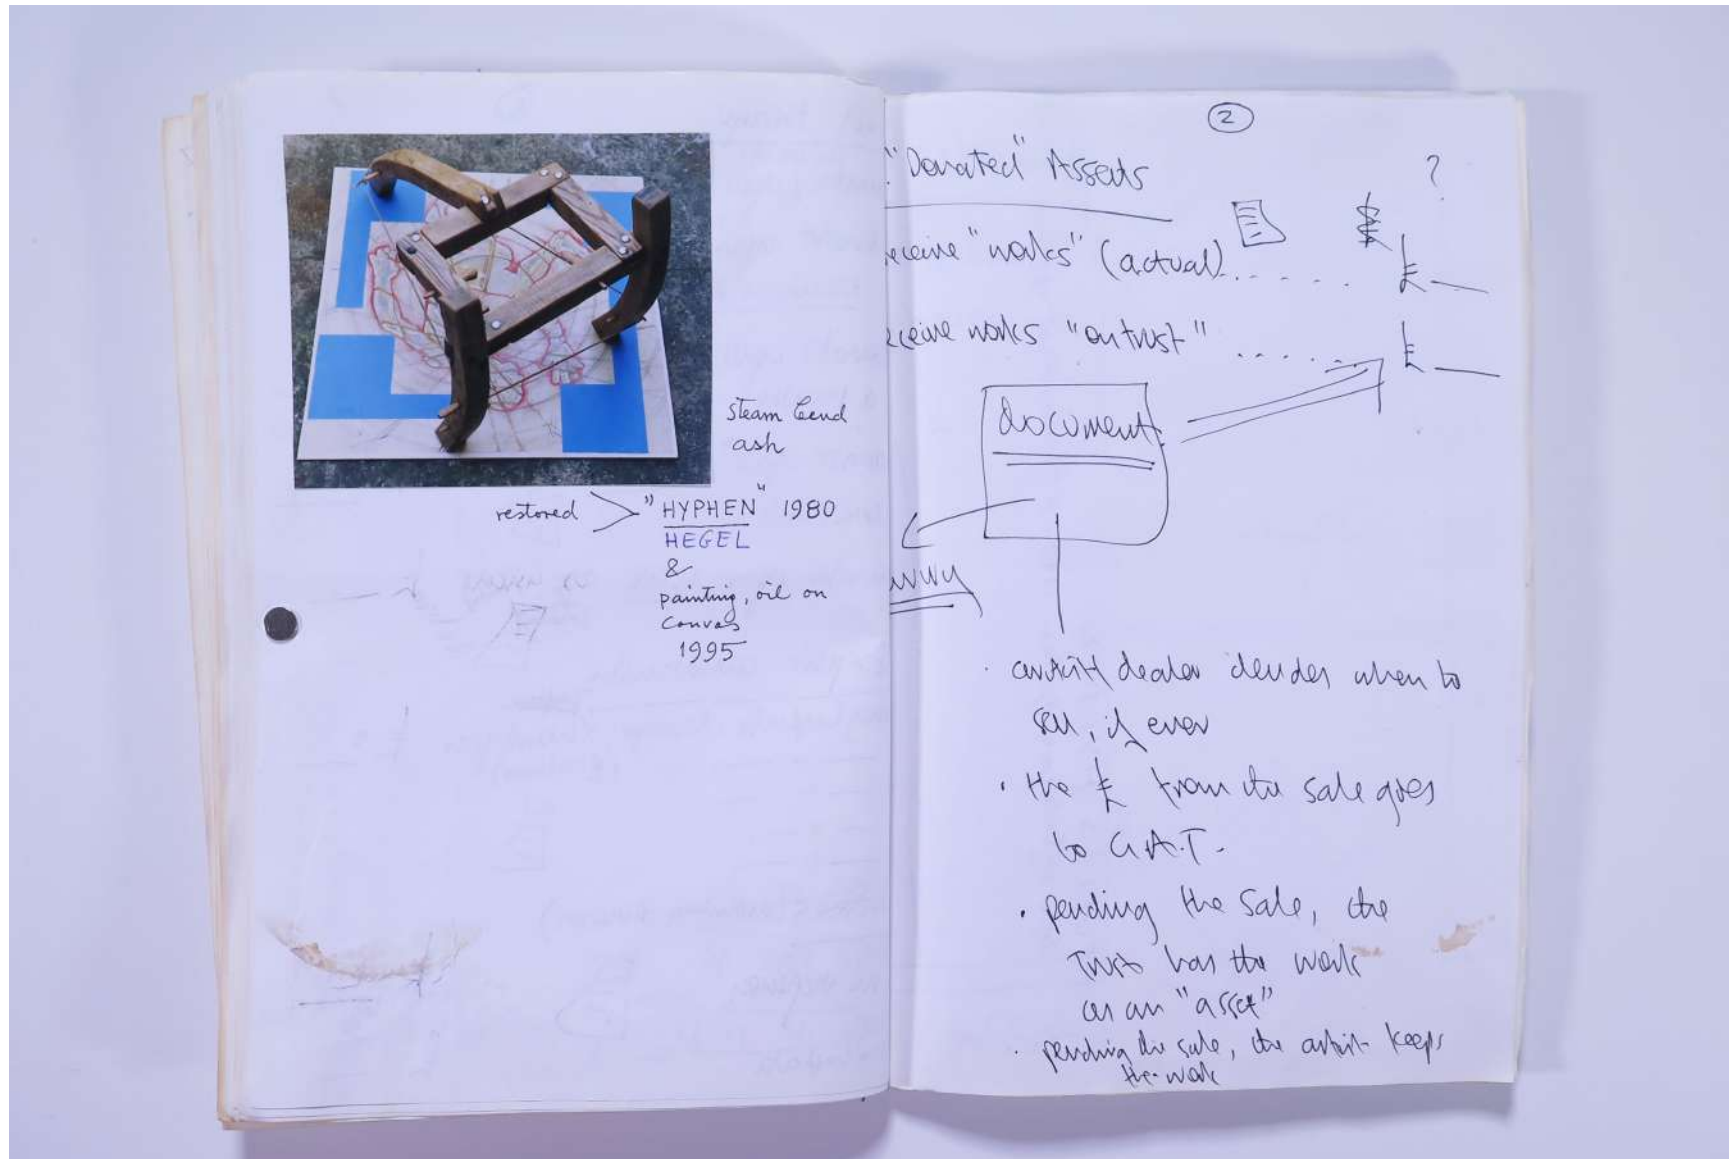 steam bend
ash
restored > "HYPHEN" 1980
HEGEL
&
painting, oil on
canvas
1995
2
"Donated" Assets
?
eceive "works" (actual) ...... £
eceive works "on trust" ...... £
document
artist/dealer decides when to
sell, if ever
· the £ from the sale goes
to G.A.T.
· pending the sale, the
Trust has the work
as an "asset"
· pending the sale, the artist keeps
the work